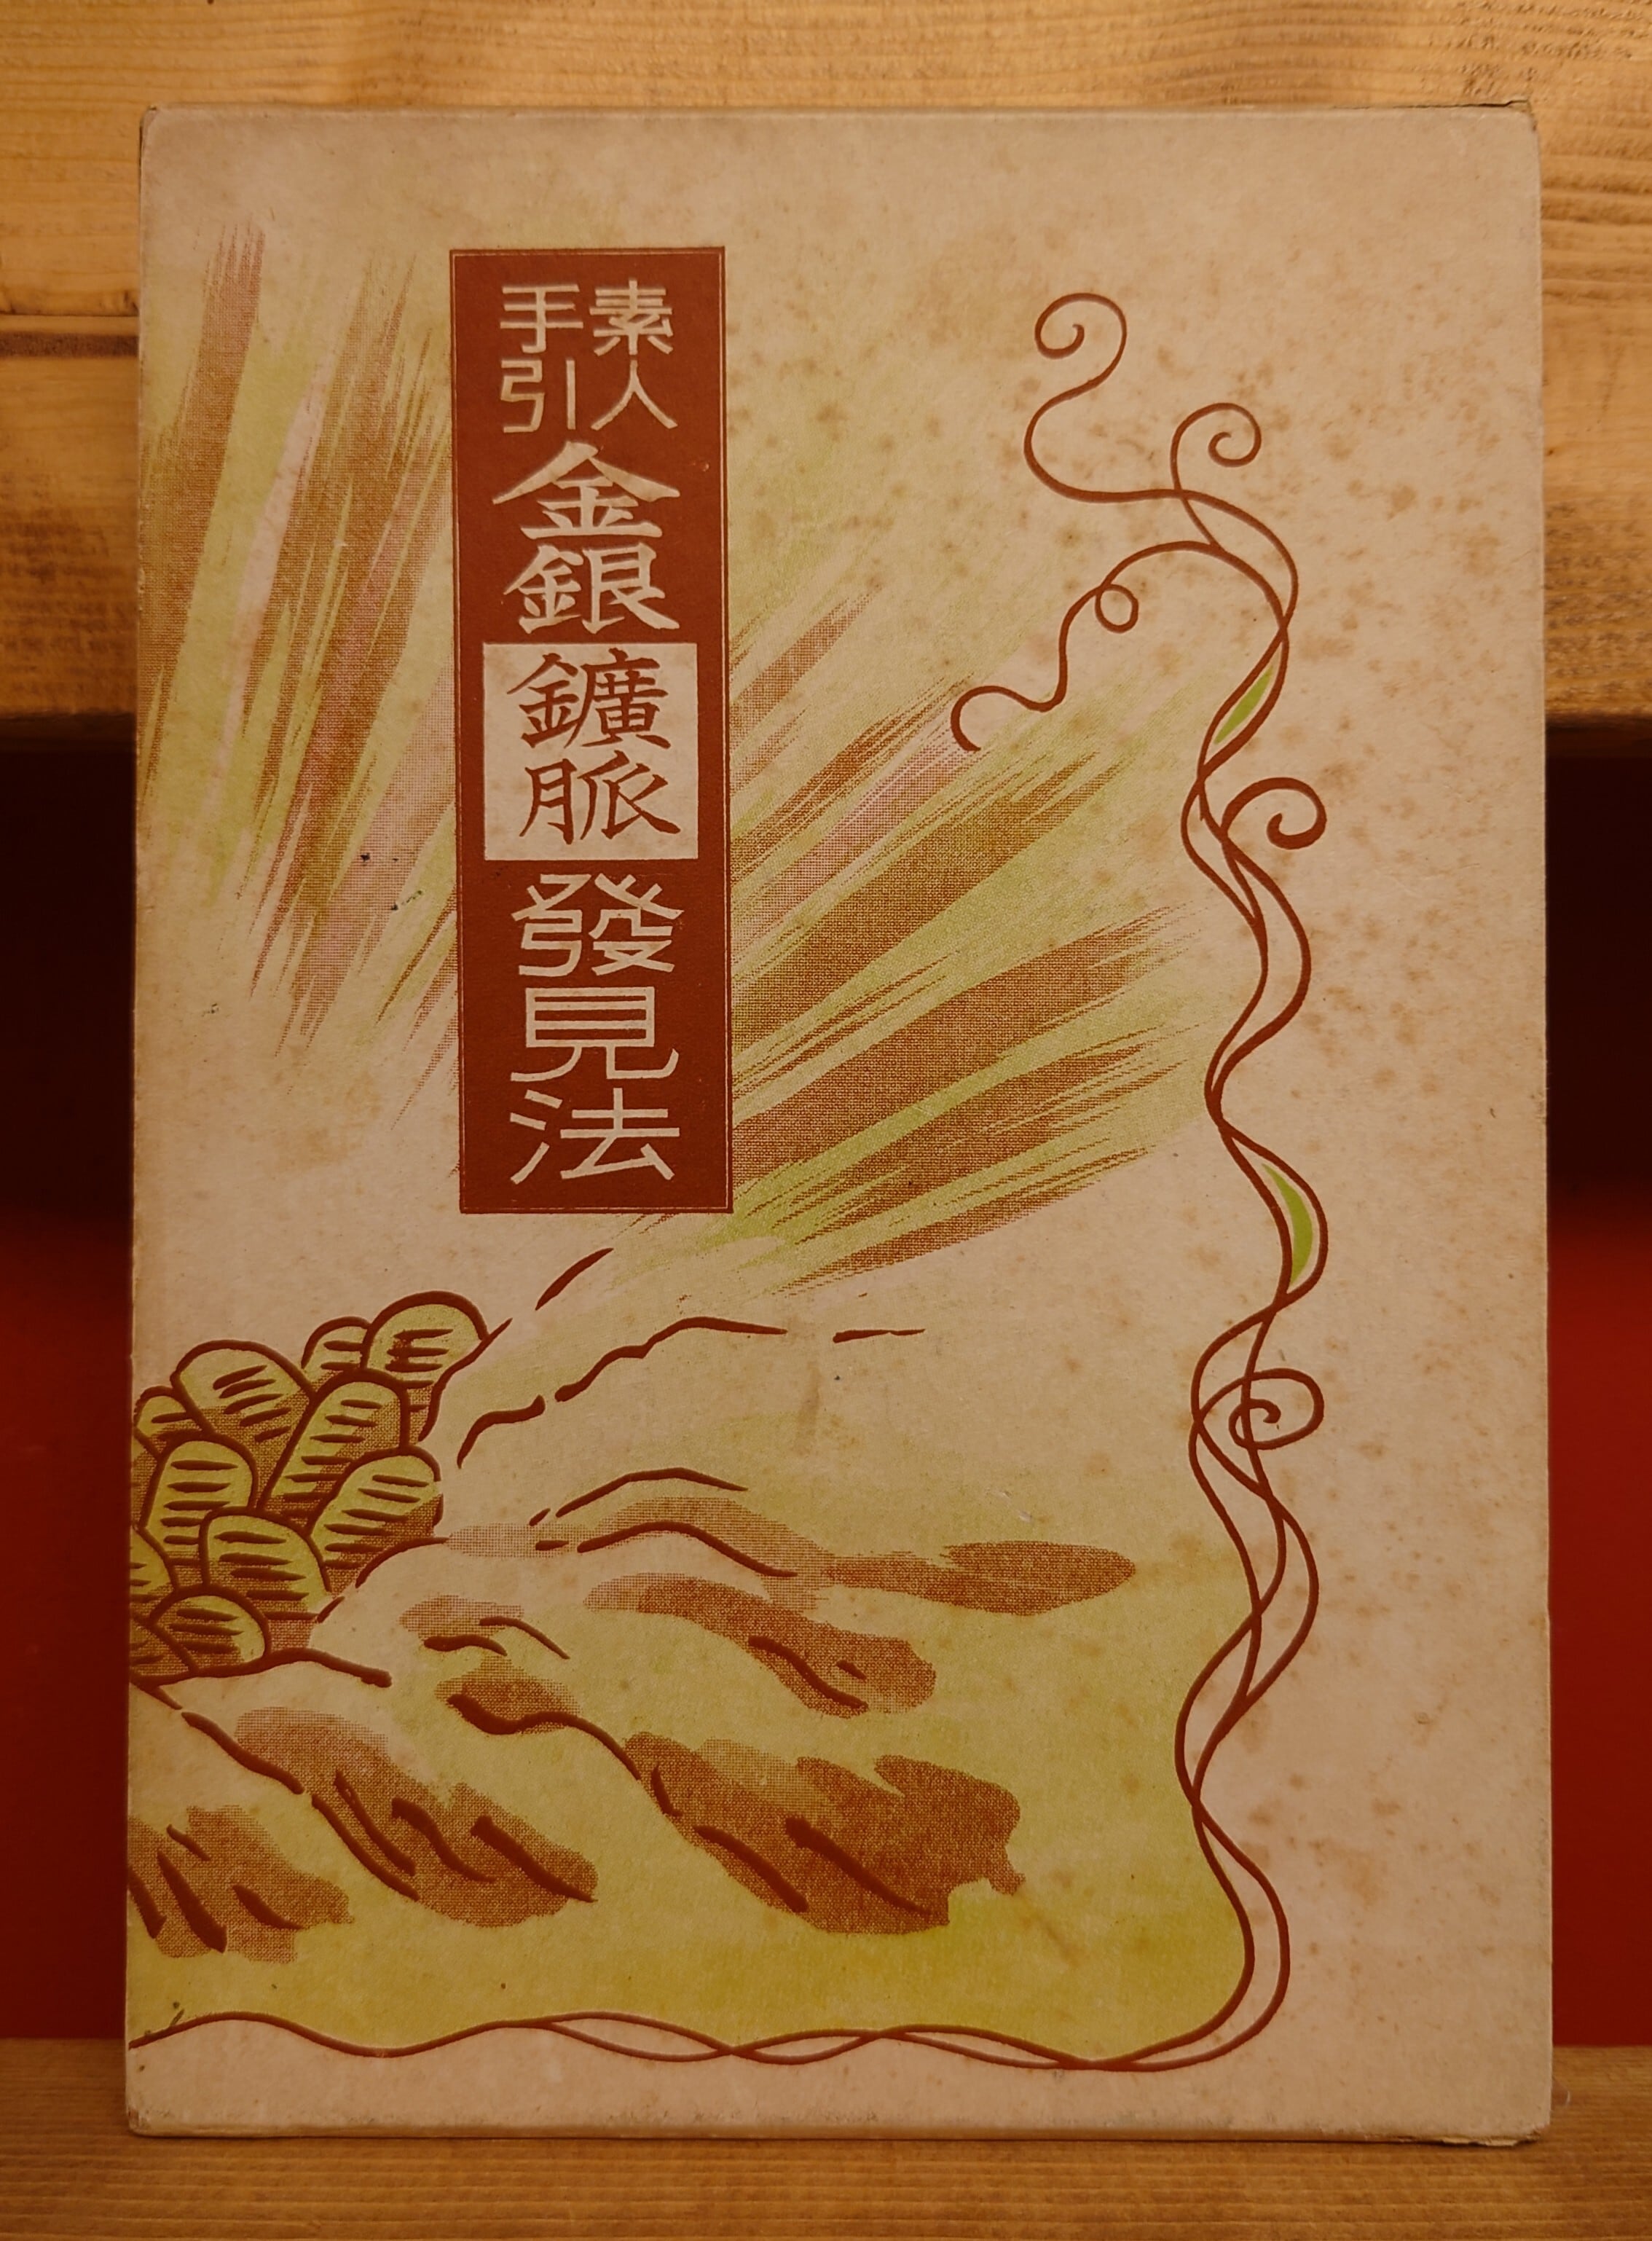 素人
手引
金銀鑛脈發見法